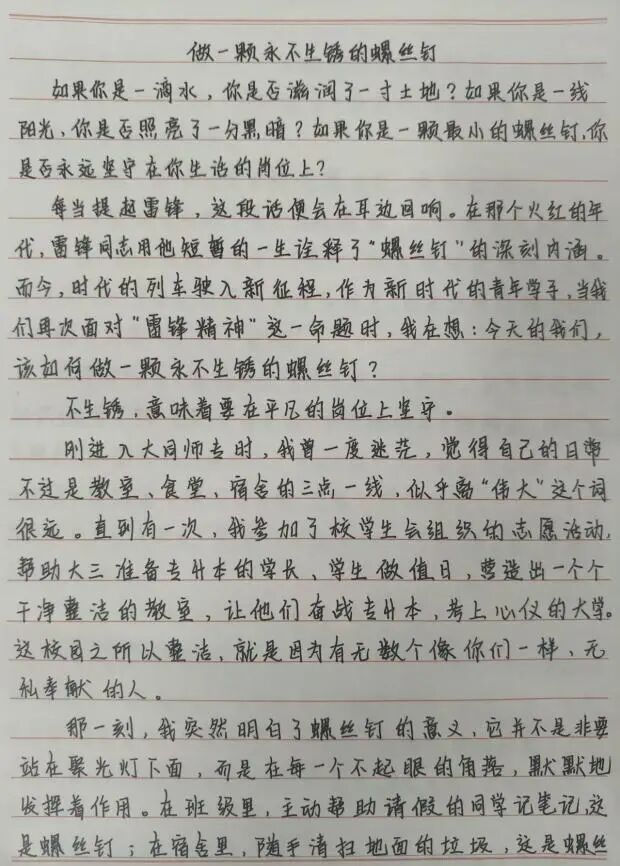 做一颗永不生锈的螺丝钉
如果你是一滴水，你是否滋润了一寸土地？如果你是一线
阳光，你是否照亮了一分黑暗？如果你是一颗最小的螺丝钉，你
是否永远坚守在你生活的岗位上？
每当提起雷锋，这段话便会在耳边回响。在那个火红的年
代，雷锋同志用他短暂的一生诠释了“螺丝钉”的深刻内涵。
而今，时代的列车驶入新征程，作为新时代的青年学子，当我
们再次面对“雷锋精神”这一命题时，我在想：今天的我们，
该如何做一颗永不生锈的螺丝钉？
不生锈，意味着要在平凡的岗位上坚守。
刚进入大同师专时，我曾一度迷茫，觉得自己的日常
不过是教室、食堂、宿舍的三点一线，似乎离“伟大”这个词
很远。直到有一次，我参加了校学生会组织的志愿活动，
帮助大三准备专升本的学长、学生做值日，营造出一个个
干净整洁的教室，让他们奋战专升本，考上心仪的大学。
这校园之所以整洁，就是因为有无数个像你们一样，无
私奉献的人。
那一刻，我突然明白了螺丝钉的意义，它并不是非要
站在聚光灯下面，而是在每一个不起眼的角落，默默地
发挥着作用。在班级里，主动帮助请假的同学记笔记，这
是螺丝钉；在宿舍里，随手清扫地面的垃圾，这是螺丝